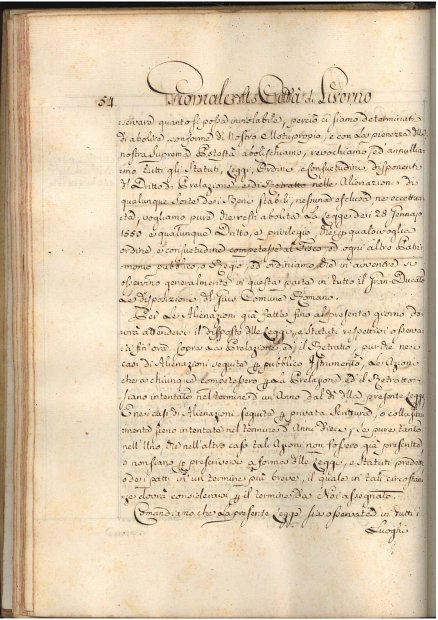 54. Giornale della Città di Livorno
servará quanto si possa inviolabile, perciò ci siamo determinati
di abolire, conforme di Nostro Motuproprio, e con la pienezza della
nostra Suprema Potestà abolischiamo, revochiamo, ed annullia
mo Tutti gli Statuti, Leggi, Ordini, e Consuetudini disponenti
il Dritto di Prelazione, e di Retratto nelle Alienazioni di
qualunque sorte dei Beni stabili, nessuna esclusa, ne eccettua
ta, vogliamo pure che resti abolita La Legge dei 28 Gennajo
1550 e qualunque Dritto, o privilegio, che in qualsivoglia
ordine, e consuetudine competesse al Fisco ed ogni altro Patri
monio pubblico, o Regio, ed ordiniamo, che in avvenire si
osservino generalmente in questa parte in tutto il Gran-Ducato
Le disposizioni del Jius Comune Romano.
Per Le Alienazioni già fatte fino al presente giorno do
verà attendersi il disposto delle Leggi, e Statuti respettivi osserva
ti fin'ora sopra La Prelazione, ed il Retratto, purche nei
casi di Alienazioni seguite p pubblico Istrumento, Le Azioni
che a chiunque competessero p La Prelazione, ed il Retratto
siano intentate nel termine d'un Anno dal dì della presente Legge
E nei casi di Alienazioni seguite p privata Scrittura, o colla
mente sieno intentate nel termine d'Anni dieci, se pure tanto
nell'Uno, che nell'altro caso tali Azioni non fossero già prescritte
o non siano p prescriversi a forma delle Leggi, e Statuti predetti
o dei patti in un termine più breve, il quale in tali circostan
ze dovrà considerarsi p il termine da Noi assegnato.
Comandiamo che La presente Legge sia osservata in tutti i
Luoghi